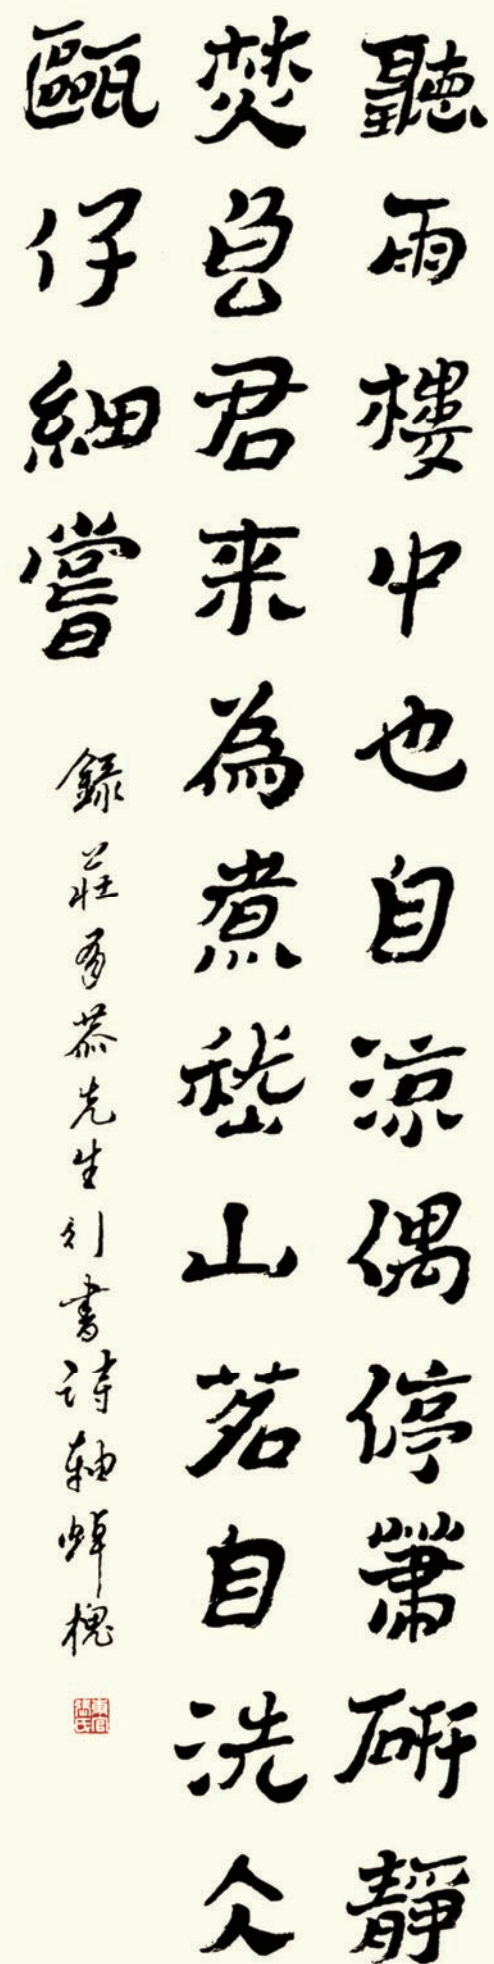 聽雨樓中也自涼偶停筆研靜
焚香君来為煮嵇山茗自洗仌
甌仔細嘗
錄莊有恭先生行書詩軸焯槐